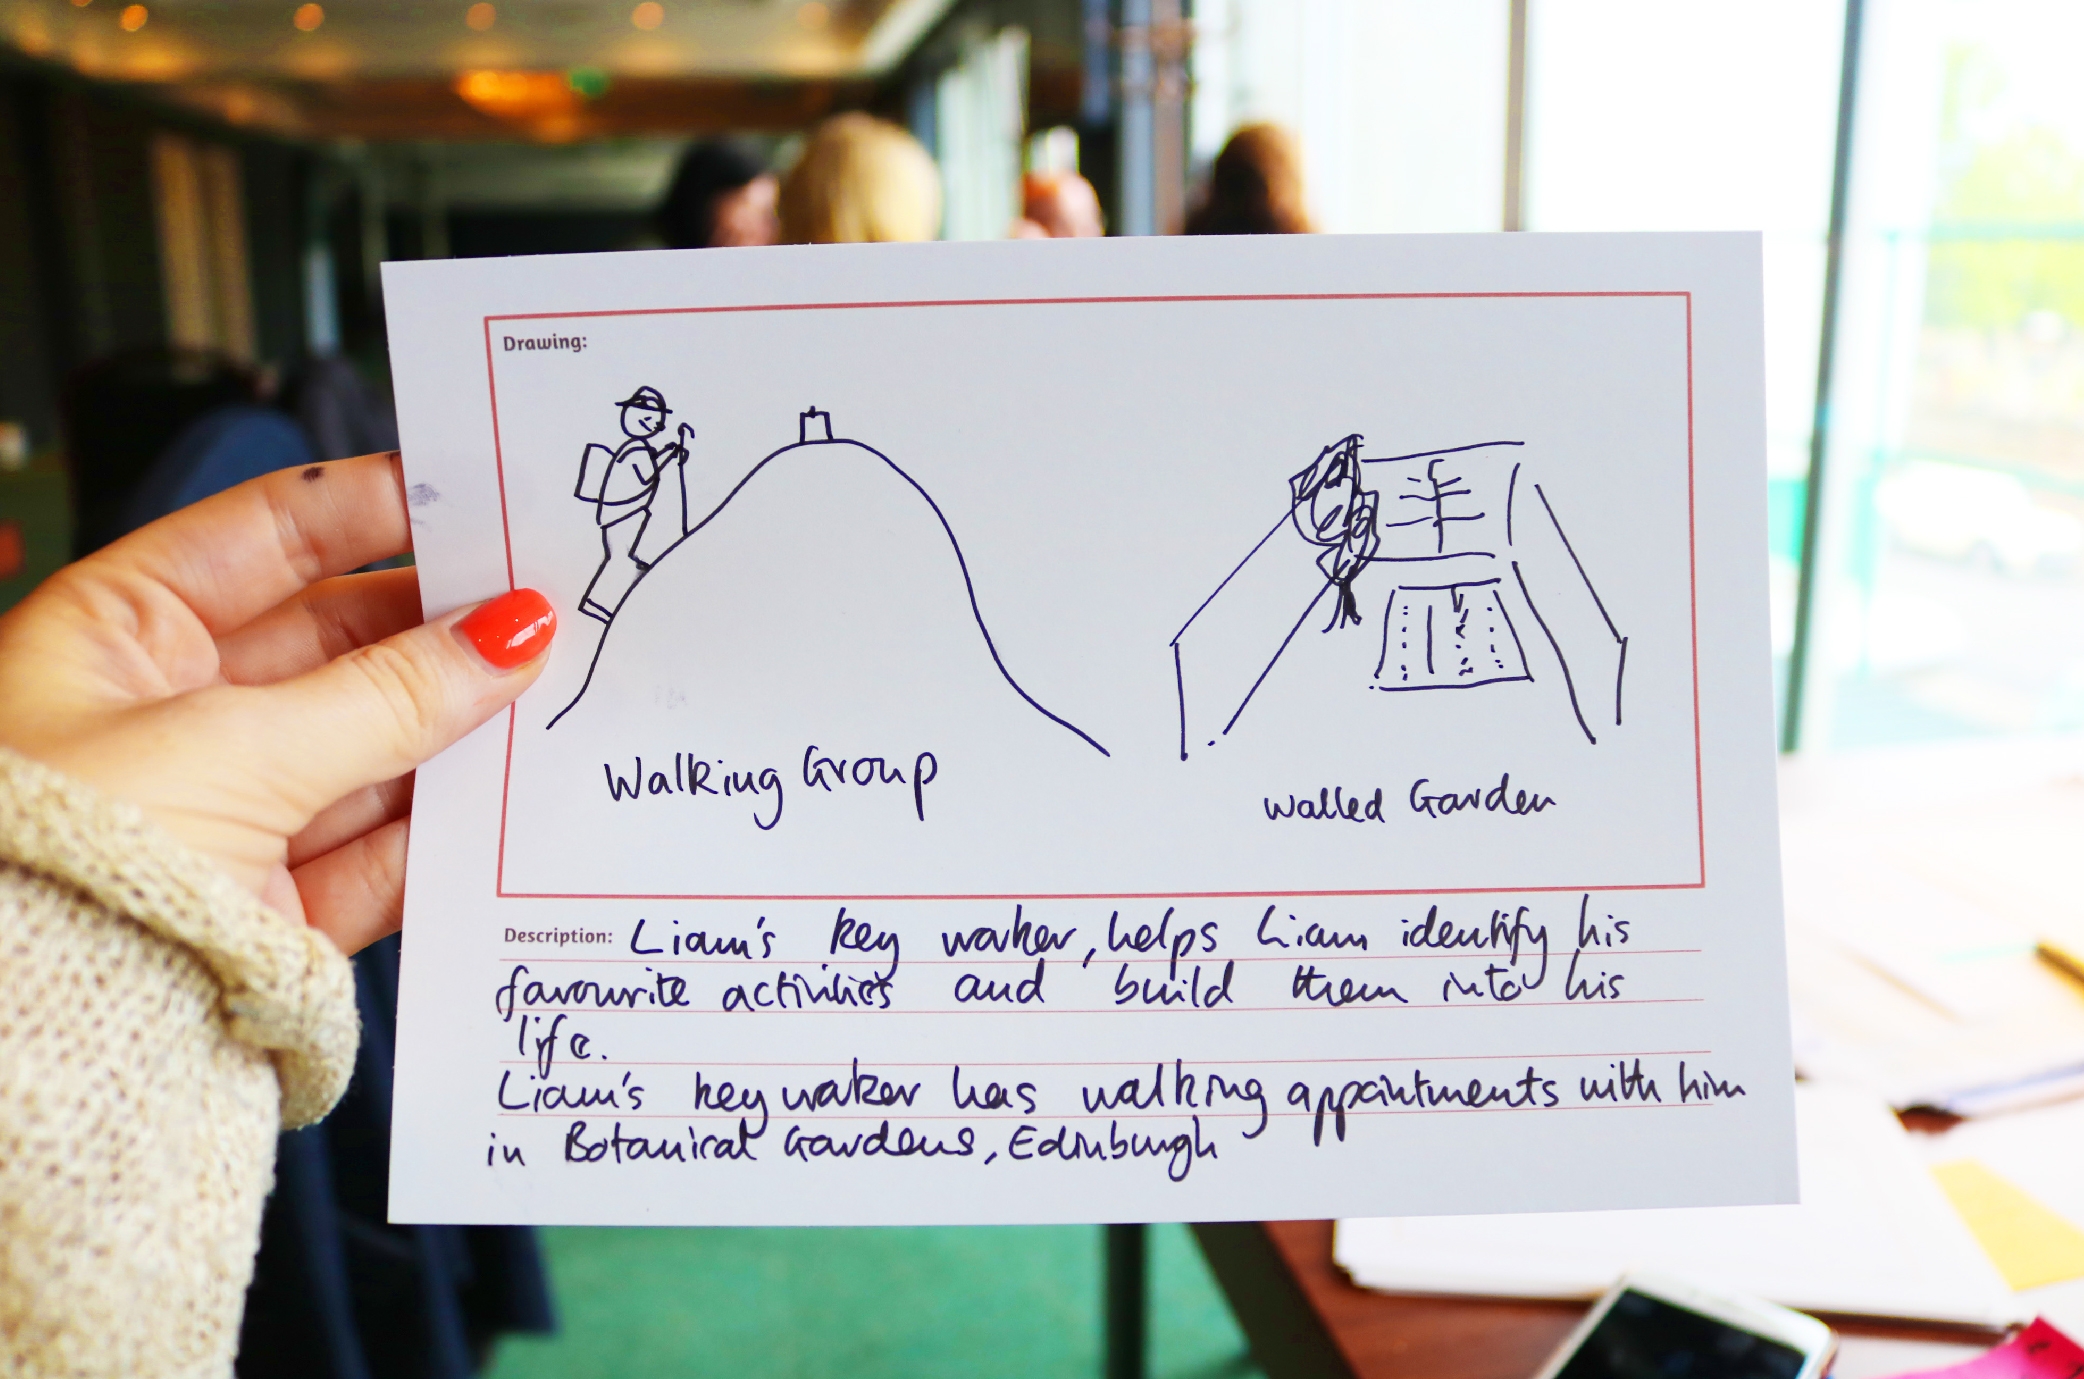 Drawing:
Walking Group
Walled Garden
Description: Liam's key worker, helps Liam identify his
favourite activities and build them into his
life.
Liam's key worker has walking appointments with him
in Botanical Gardens, Edinburgh